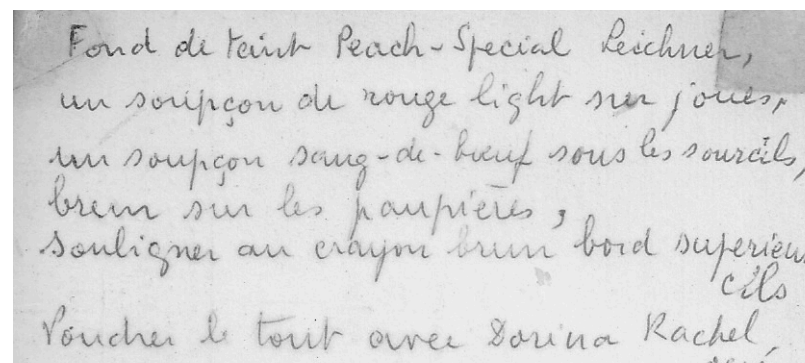 Fond de teint Peach-Special Leichner,
un soupçon de rouge light sur joues,
un soupçon sang-de-bœuf sous les sourcils,
brun sur les paupières,
souligner au crayon brun bord superieur
cils
Poudrer le tout avec Dorina Rachel,